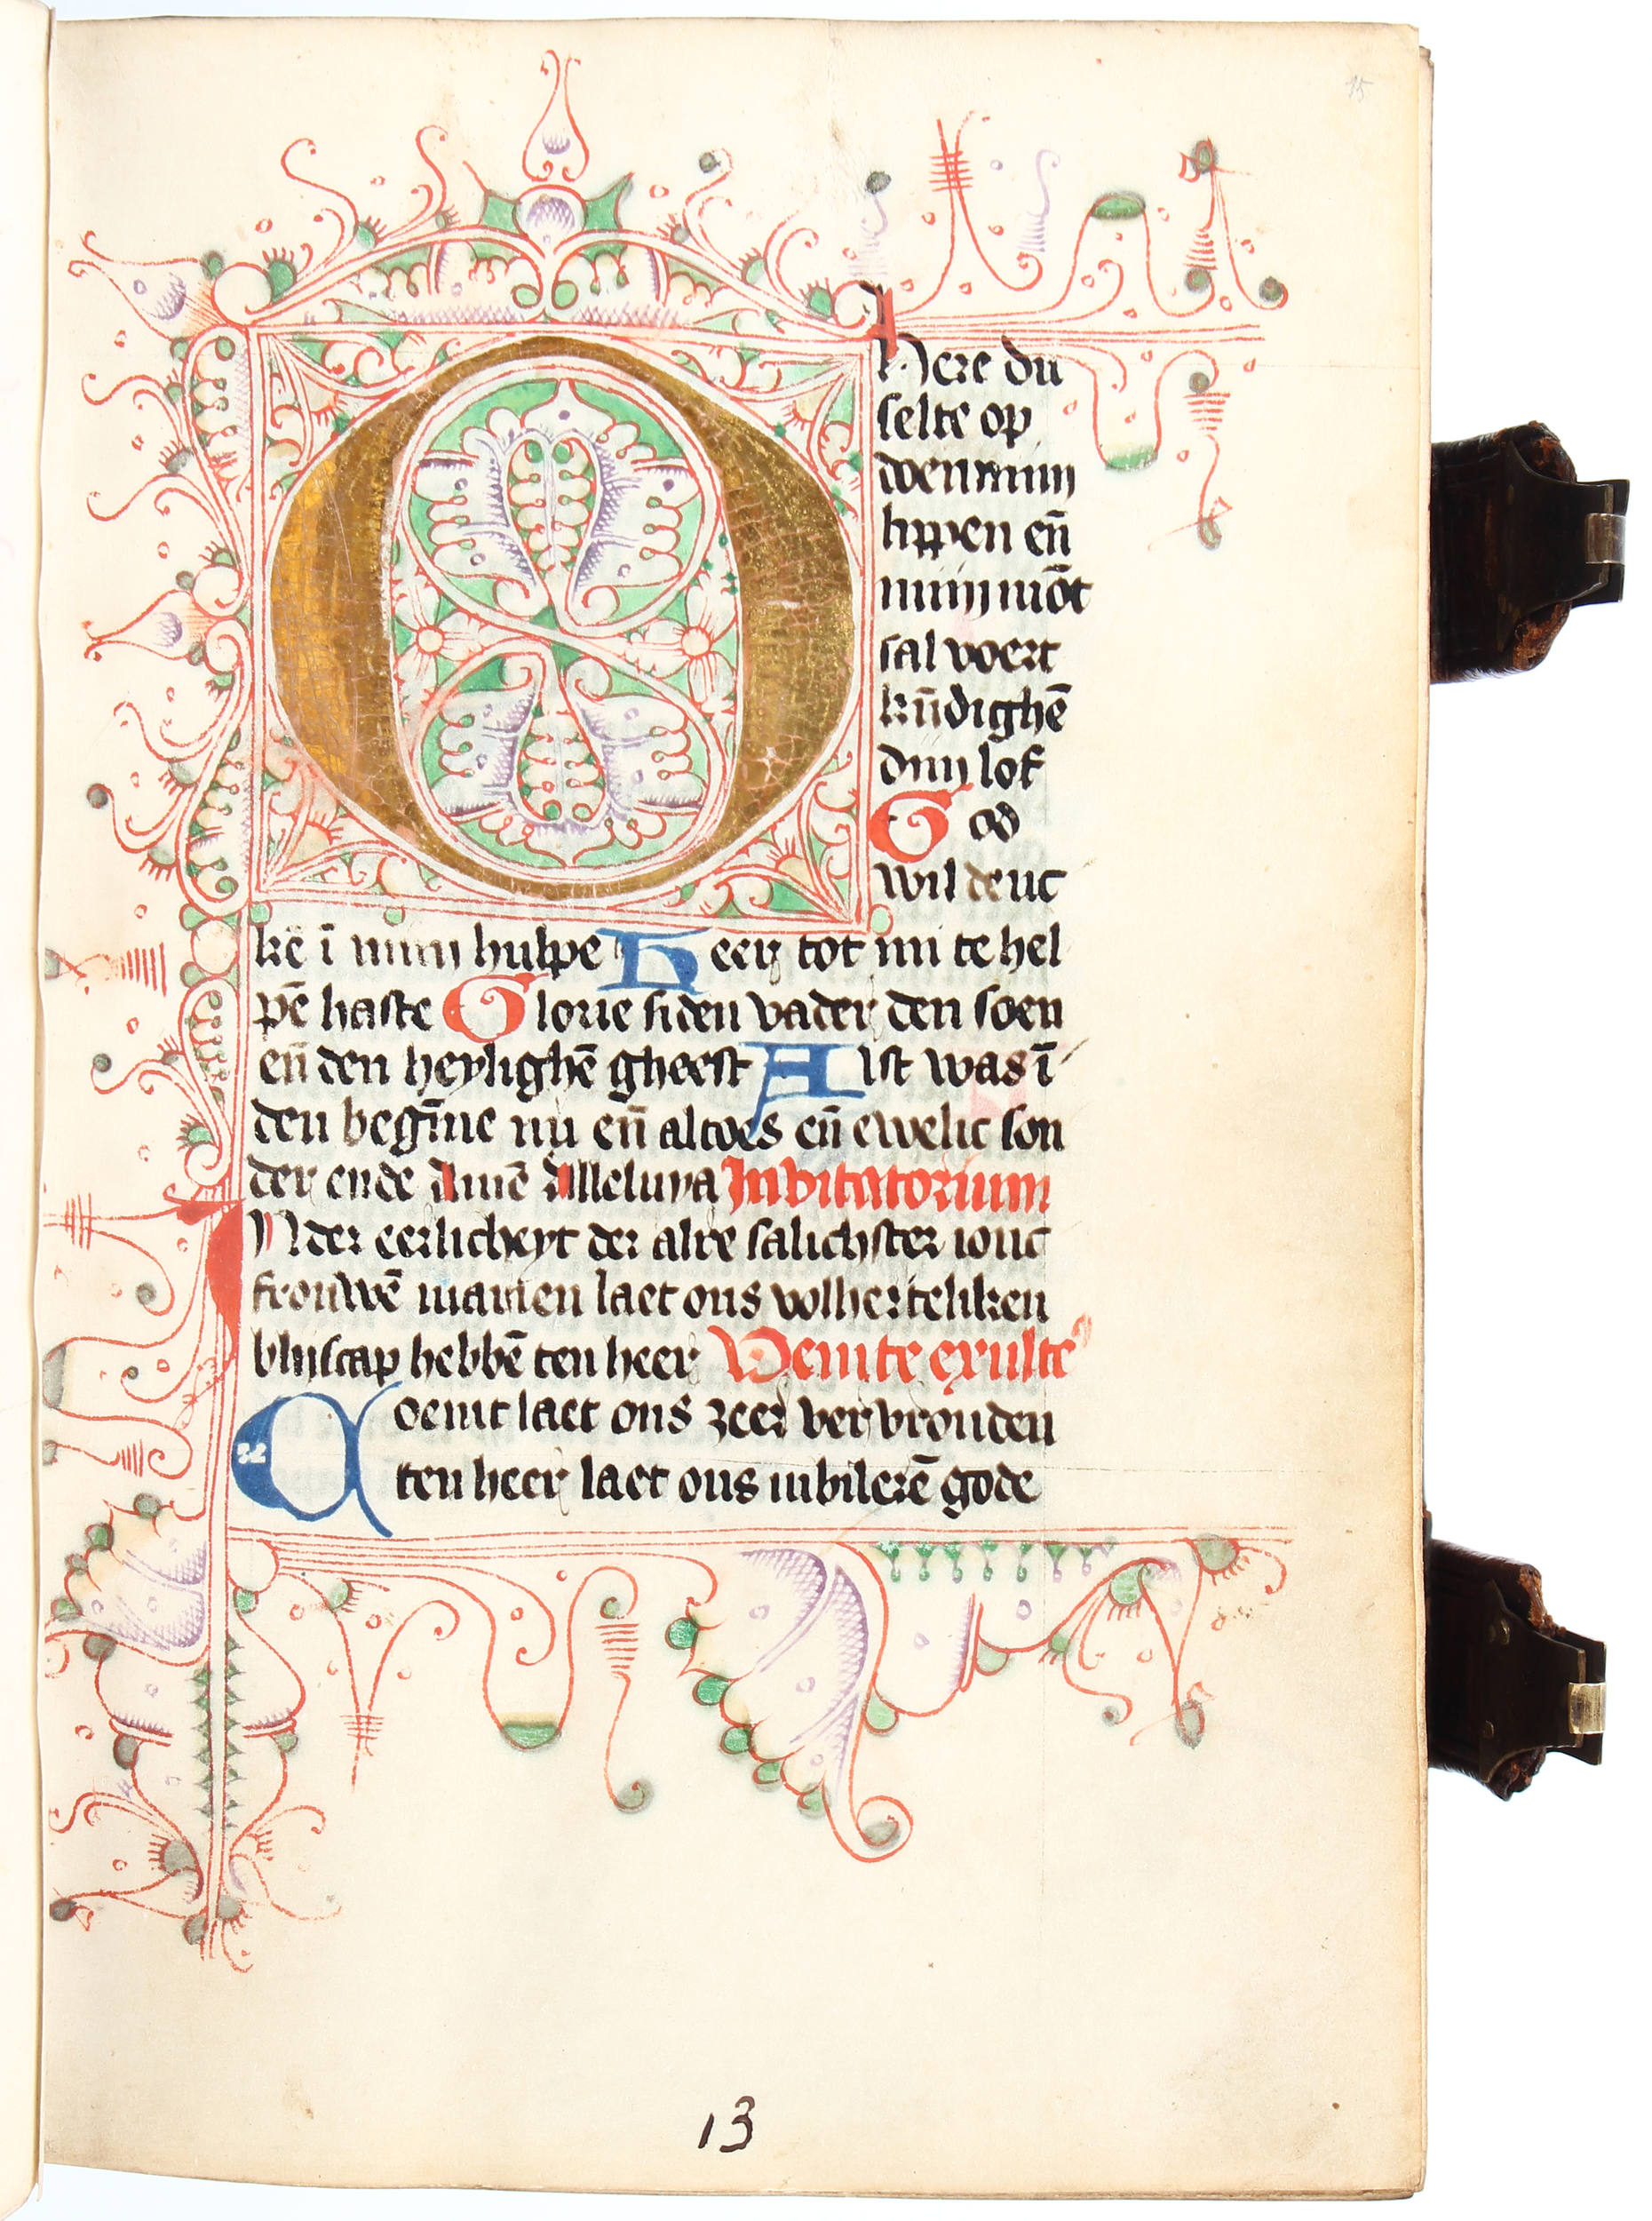 15
O Here du
selte op
doen mijn
lippen eñ
mijn mōt
sal voert
kūdighē
dijn lof
God
wil deuc
kē ī mijn hulpe Heer tot mi te hel
pē haste Glorie si den vader den soen
eñ den heylighē gheest Alst was ī
den begīne nu eñ altoes eñ ewelic son
der ende Amē Alleluya Invitatorium
INder eerlicheyt der alre salichster ionc
frouwē marien laet ons volherteliken
bliiscap hebbē ten heer Venite exulte
Coemt laet ons zeer vervrouden
ten heer laet ons iubilerē gode
13